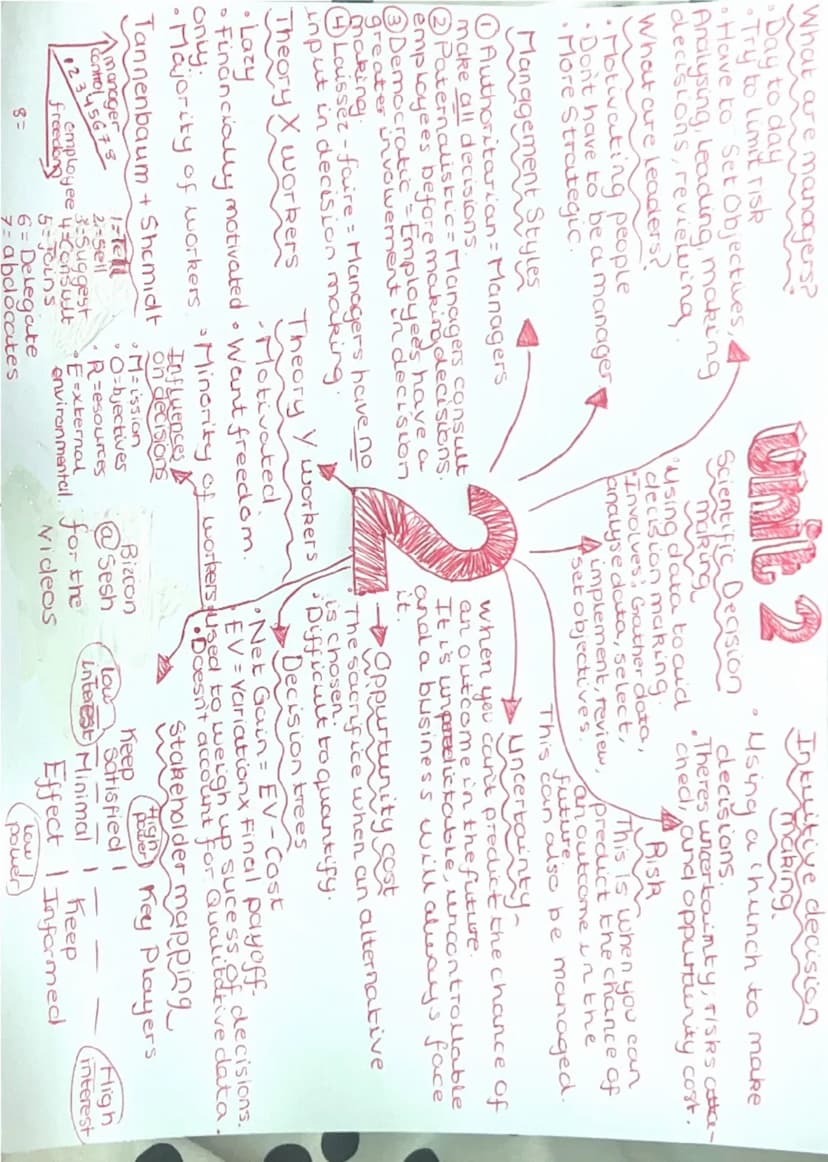 Unit 2
2
What are managers?
• Day to day
• Try to limit risk
• Have to set objectives,
Analysing, leading, making
decisions, reviewing.
What are leaders?
• Motivating people
• Don't have to be a manager
• More Strategic.
Management Styles
① Authoritarian = Managers
make all decisions.
② Paternalistic = Managers consult
employees before making decisions.
③ Democratic = Employees have a
greater invovement in decision
making.
④ Laissez-faire = Managers have no
input in decision making.
Theory X workers
• Lazy
• Financially motivated
only.
• Majority of workers
Theory Y workers
• Motivated
• Want freedom.
• Minority of workers
Tannenbaum + Shcmidt
manager
control
1 2 3 4 5 6 7 8
employee
freedom
1= Tell
2= Sell
3= Suggest
4= Consult
5= Joins
6= Delegate
7= abdocates
8=
Influences
on decisions
• M=ission
• O=bjectives
R=esources
• E=xternal
environmental
Bizcon
@Sesh
for the
videos
Scientific Decision
making
• Using data to aid
decision making.
• Involves: Gather data,
analyse data, select,
implement, review,
set objectives.
Intuitive decision
making.
• Using a hunch to make
decisions.
• Theres uncertainty, risks atta-
ched, and oppurtunity cost.
Risk
This is when you can
predict the chance of
an outcome in the
future.
This can also be managed.
Uncertainty-
when you can't predict the chance of
an outcome in the future.
It is unpredictable, uncontrollable
and a business will always face
it.
Oppurtunity cost
• The sacrifice when an alternative
is chosen.
• Difficult to quantify.
Decision trees
• Net Gain = EV - Cost
• EV = variation x final payoff-
• Used to weigh up sucess of decisions.
• Doesn't account for Qualitative data.
Stakeholder mapping
High
power
Keep
Satisfied
Key Players
low
interest
High
interest
Minimal
Effect
Keep
Informed
low
power